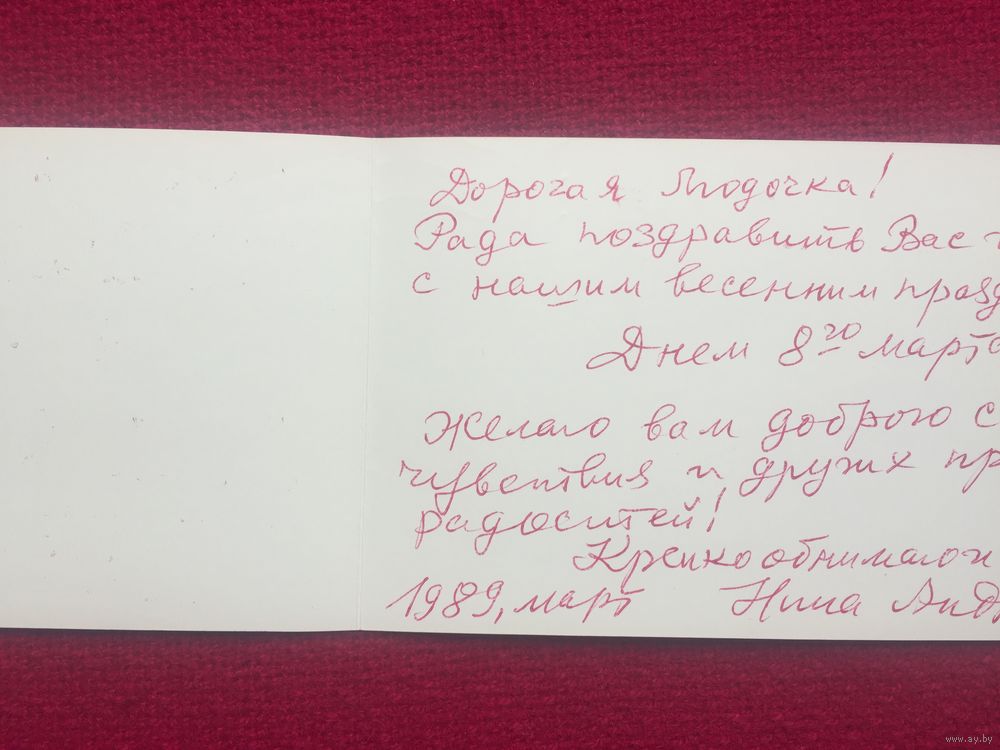 Дорогая Людочка!
Рада поздравить Вас
с нашим весенним празд
Днем 8го марта
Желаю вам доброго с
чувствия и других пр
радостей!
Крепко обнимаю и
1989, март Нина Анд
www.ay.by